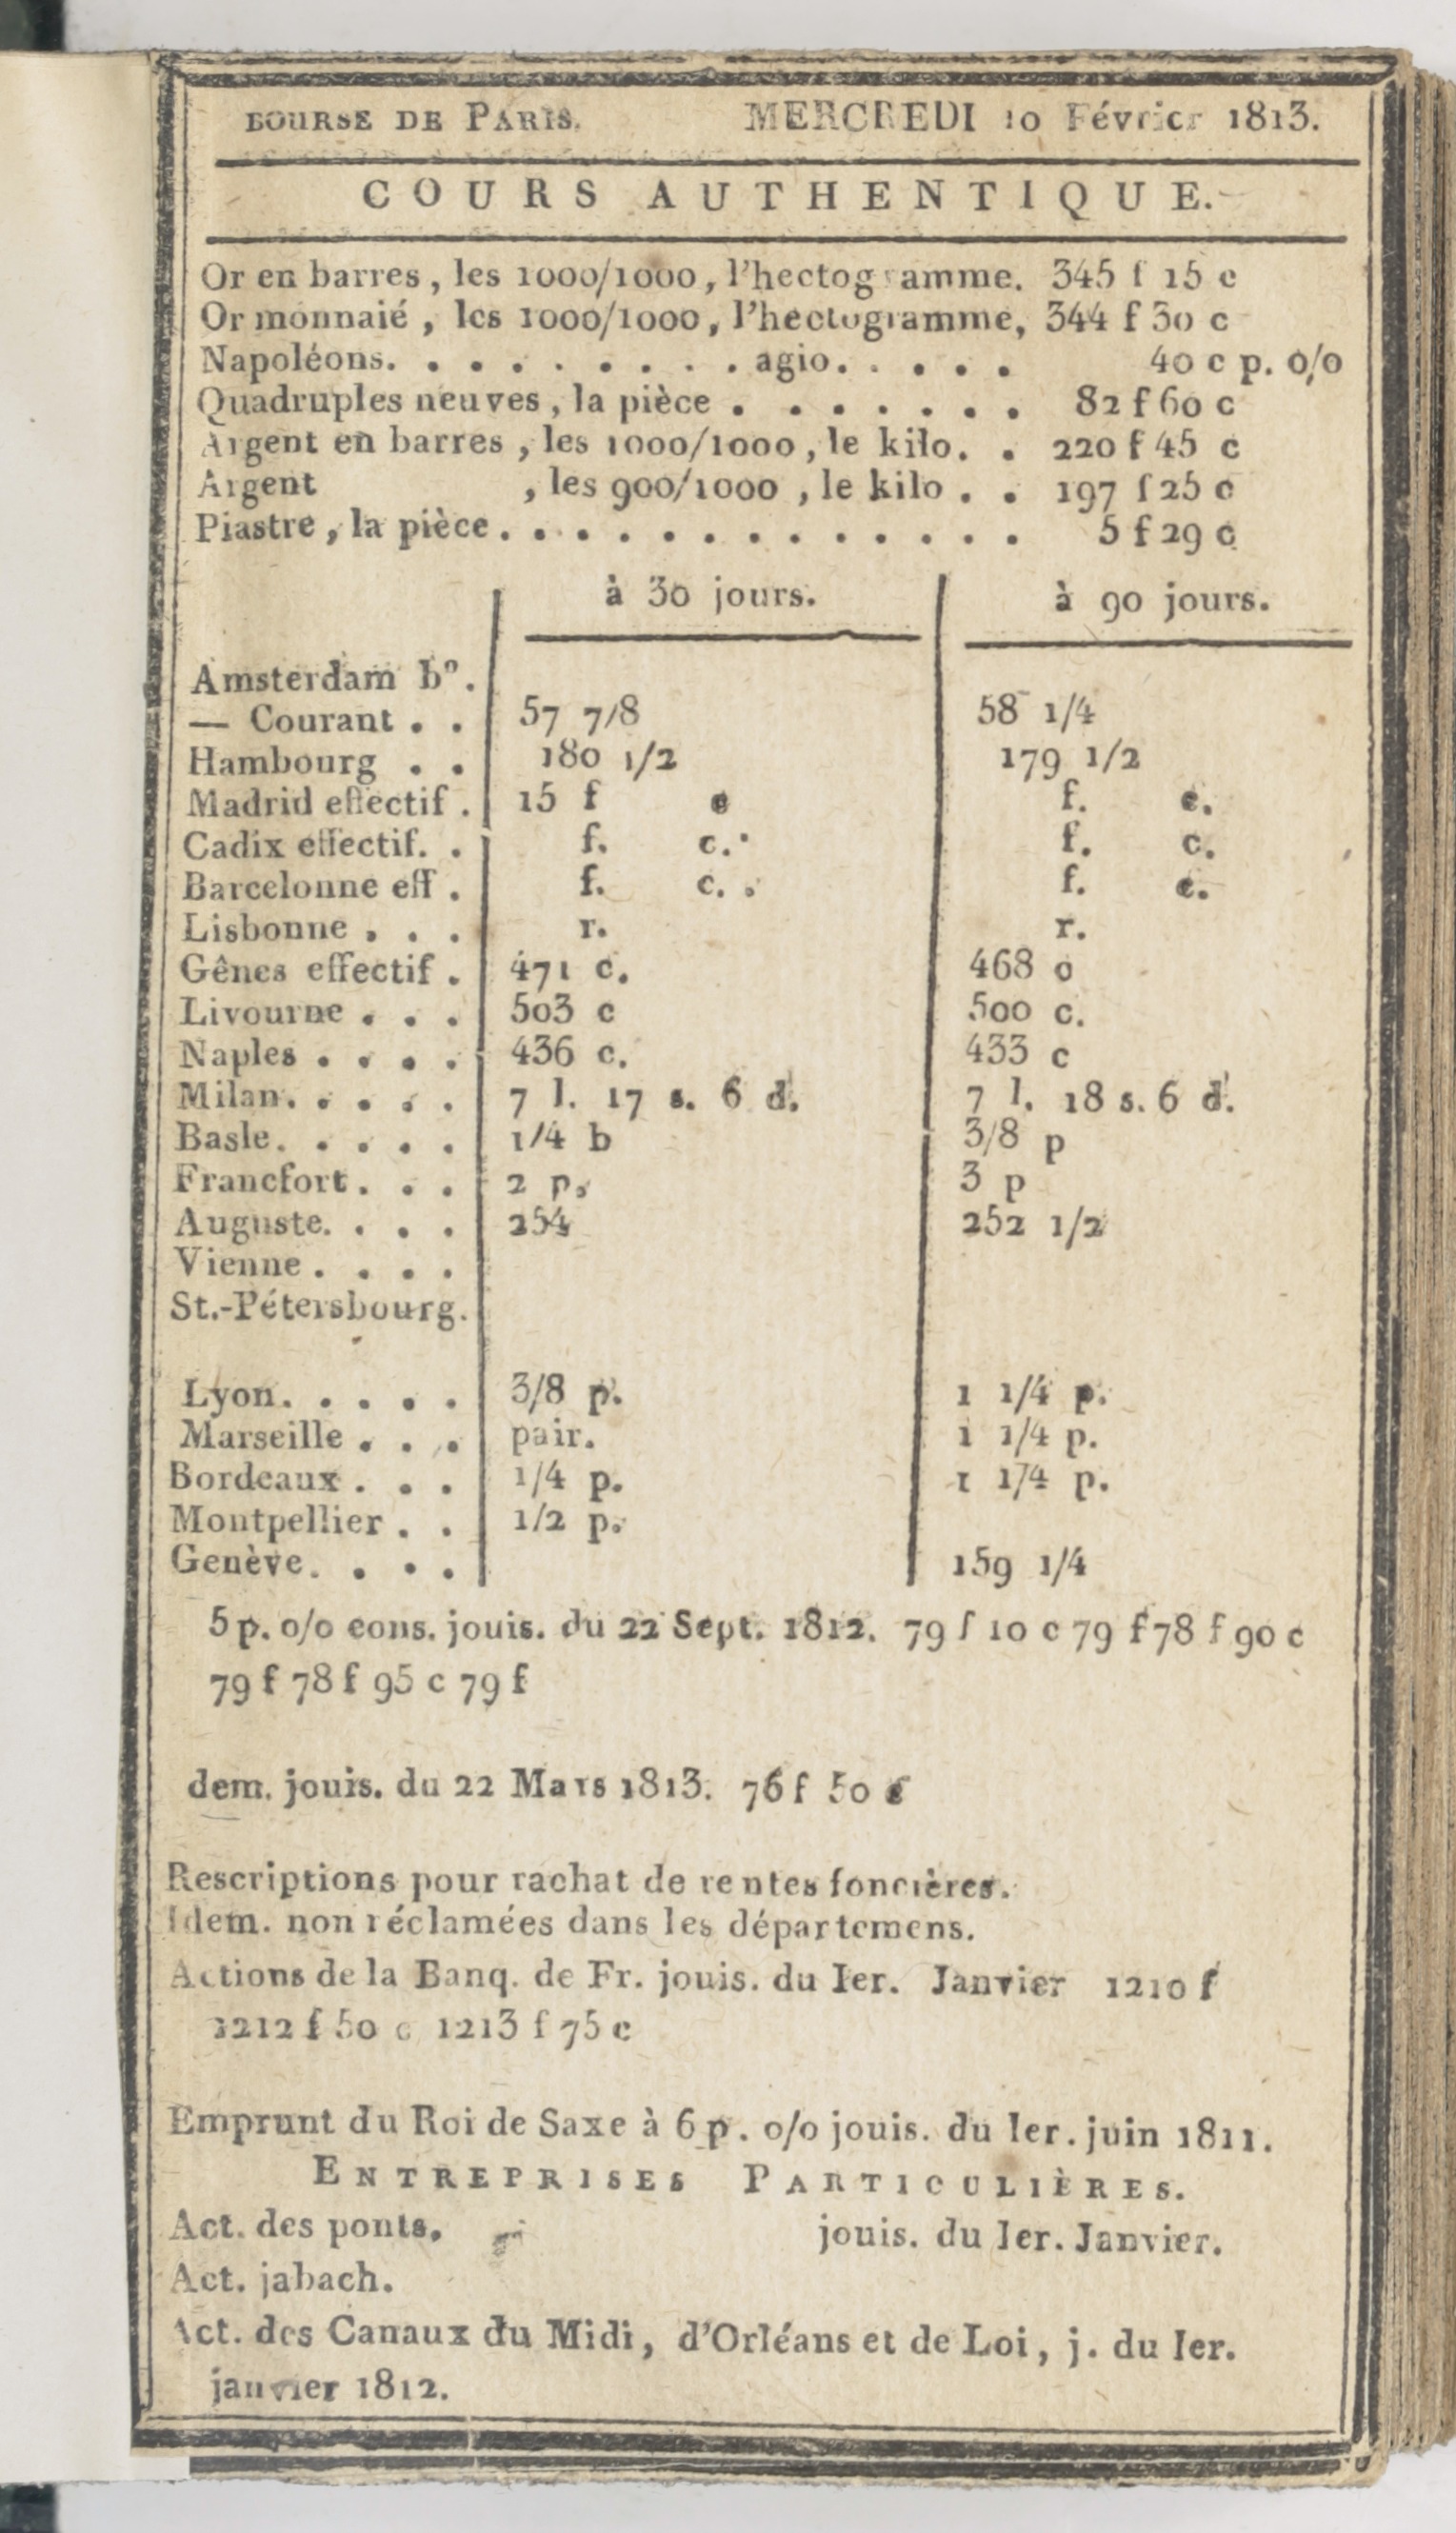 BOURSE DE PARIS. MERCREDI 10 Février 1813.
COURS AUTHENTIQUE.
Or en barres, les 1000/1000, l'hectogramme. 345 f 15 c
Or monnaié, les 1000/1000, l'hectogramme, 344 f 30 c
Napoléons. . . . . . . . . agio. . . . . 40 c p. 0/0
Quadruples neuves, la pièce . . . . . . . 82 f 60 c
Argent en barres, les 1000/1000, le kilo. . 220 f 45 c
Argent , les 900/1000, le kilo . . 197 f 25 c
Piastre, la pièce. . . . . . . . . . . . . 5 f 29 c
à 30 jours. à 90 jours.
Amsterdam bº.
— Courant . . 57 7/8 58 1/4
Hambourg . . 180 1/2 179 1/2
Madrid effectif . 15 f c f. c.
Cadix effectif. . f. c. f. c.
Barcelonne eff . f. c. . f. c.
Lisbonne . . . r. r.
Gênes effectif . 471 c. 468 c
Livourne . . . 503 c 500 c.
Naples . . . . 436 c. 433 c
Milan. . . . . 7 l. 17 s. 6 d. 7 l. 18 s. 6 d.
Basle. . . . . 1/4 b 3/8 p
Francfort. . . 2 p. 3 p
Auguste. . . . 254 252 1/2
Vienne . . . .
St.-Pétersbourg.
Lyon. . . . . 3/8 p. 1 1/4 p.
Marseille . . . pair. 1 1/4 p.
Bordeaux . . . 1/4 p. 1 1/4 p.
Montpellier . . 1/2 p.
Genève. . . . 159 1/4
5 p. 0/0 cons. jouis. du 22 Sept. 1812. 79 f 10 c 79 f 78 f 90 c
79 f 78 f 95 c 79 f
dem. jouis. du 22 Mars 1813. 76 f 50 c
Rescriptions pour rachat de rentes foncières.
Idem. non réclamées dans les départemens.
Actions de la Banq. de Fr. jouis. du Ier. Janvier 1210 f
1212 f 50 c 1213 f 75 c
Emprunt du Roi de Saxe à 6 p. 0/0 jouis. du Ier. juin 1811.
ENTREPRISES PARTICULIÈRES.
Act. des ponts. jouis. du Ier. Janvier.
Act. jabach.
Act. des Canaux du Midi, d'Orléans et de Loi, j. du Ier.
janvier 1812.